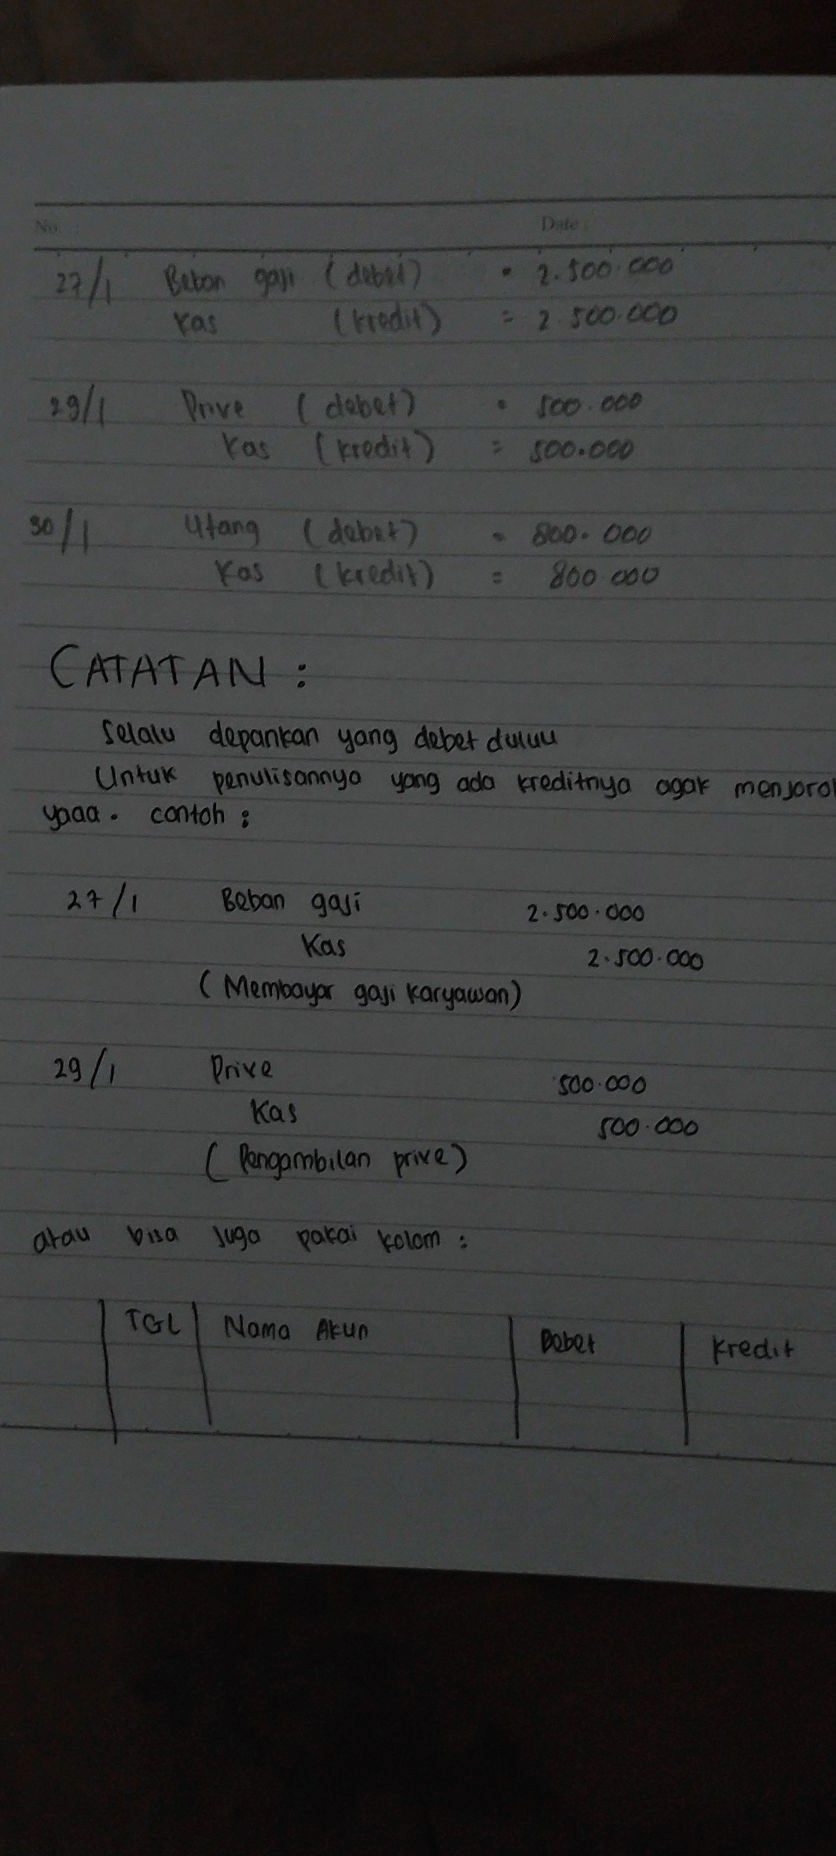 No. Date :
27/1 Beban gaji (debet) = 2.500.000
Kas (kredit) = 2.500.000
29/1 Prive (debet) = 500.000
Kas (kredit) = 500.000
30/1 Utang (debet) = 800.000
Kas (kredit) = 800.000
CATATAN :
Selalu depankan yang debet duluu
Untuk penulisannya yang ada kreditnya agak menjorok
yaaa. contoh :
27/1 Beban gaji 2.500.000
Kas 2.500.000
(Membayar gaji karyawan)
29/1 Prive 500.000
Kas 500.000
(Pengambilan prive)
atau bisa juga pakai kolom :
TGL Nama Akun Debet Kredit